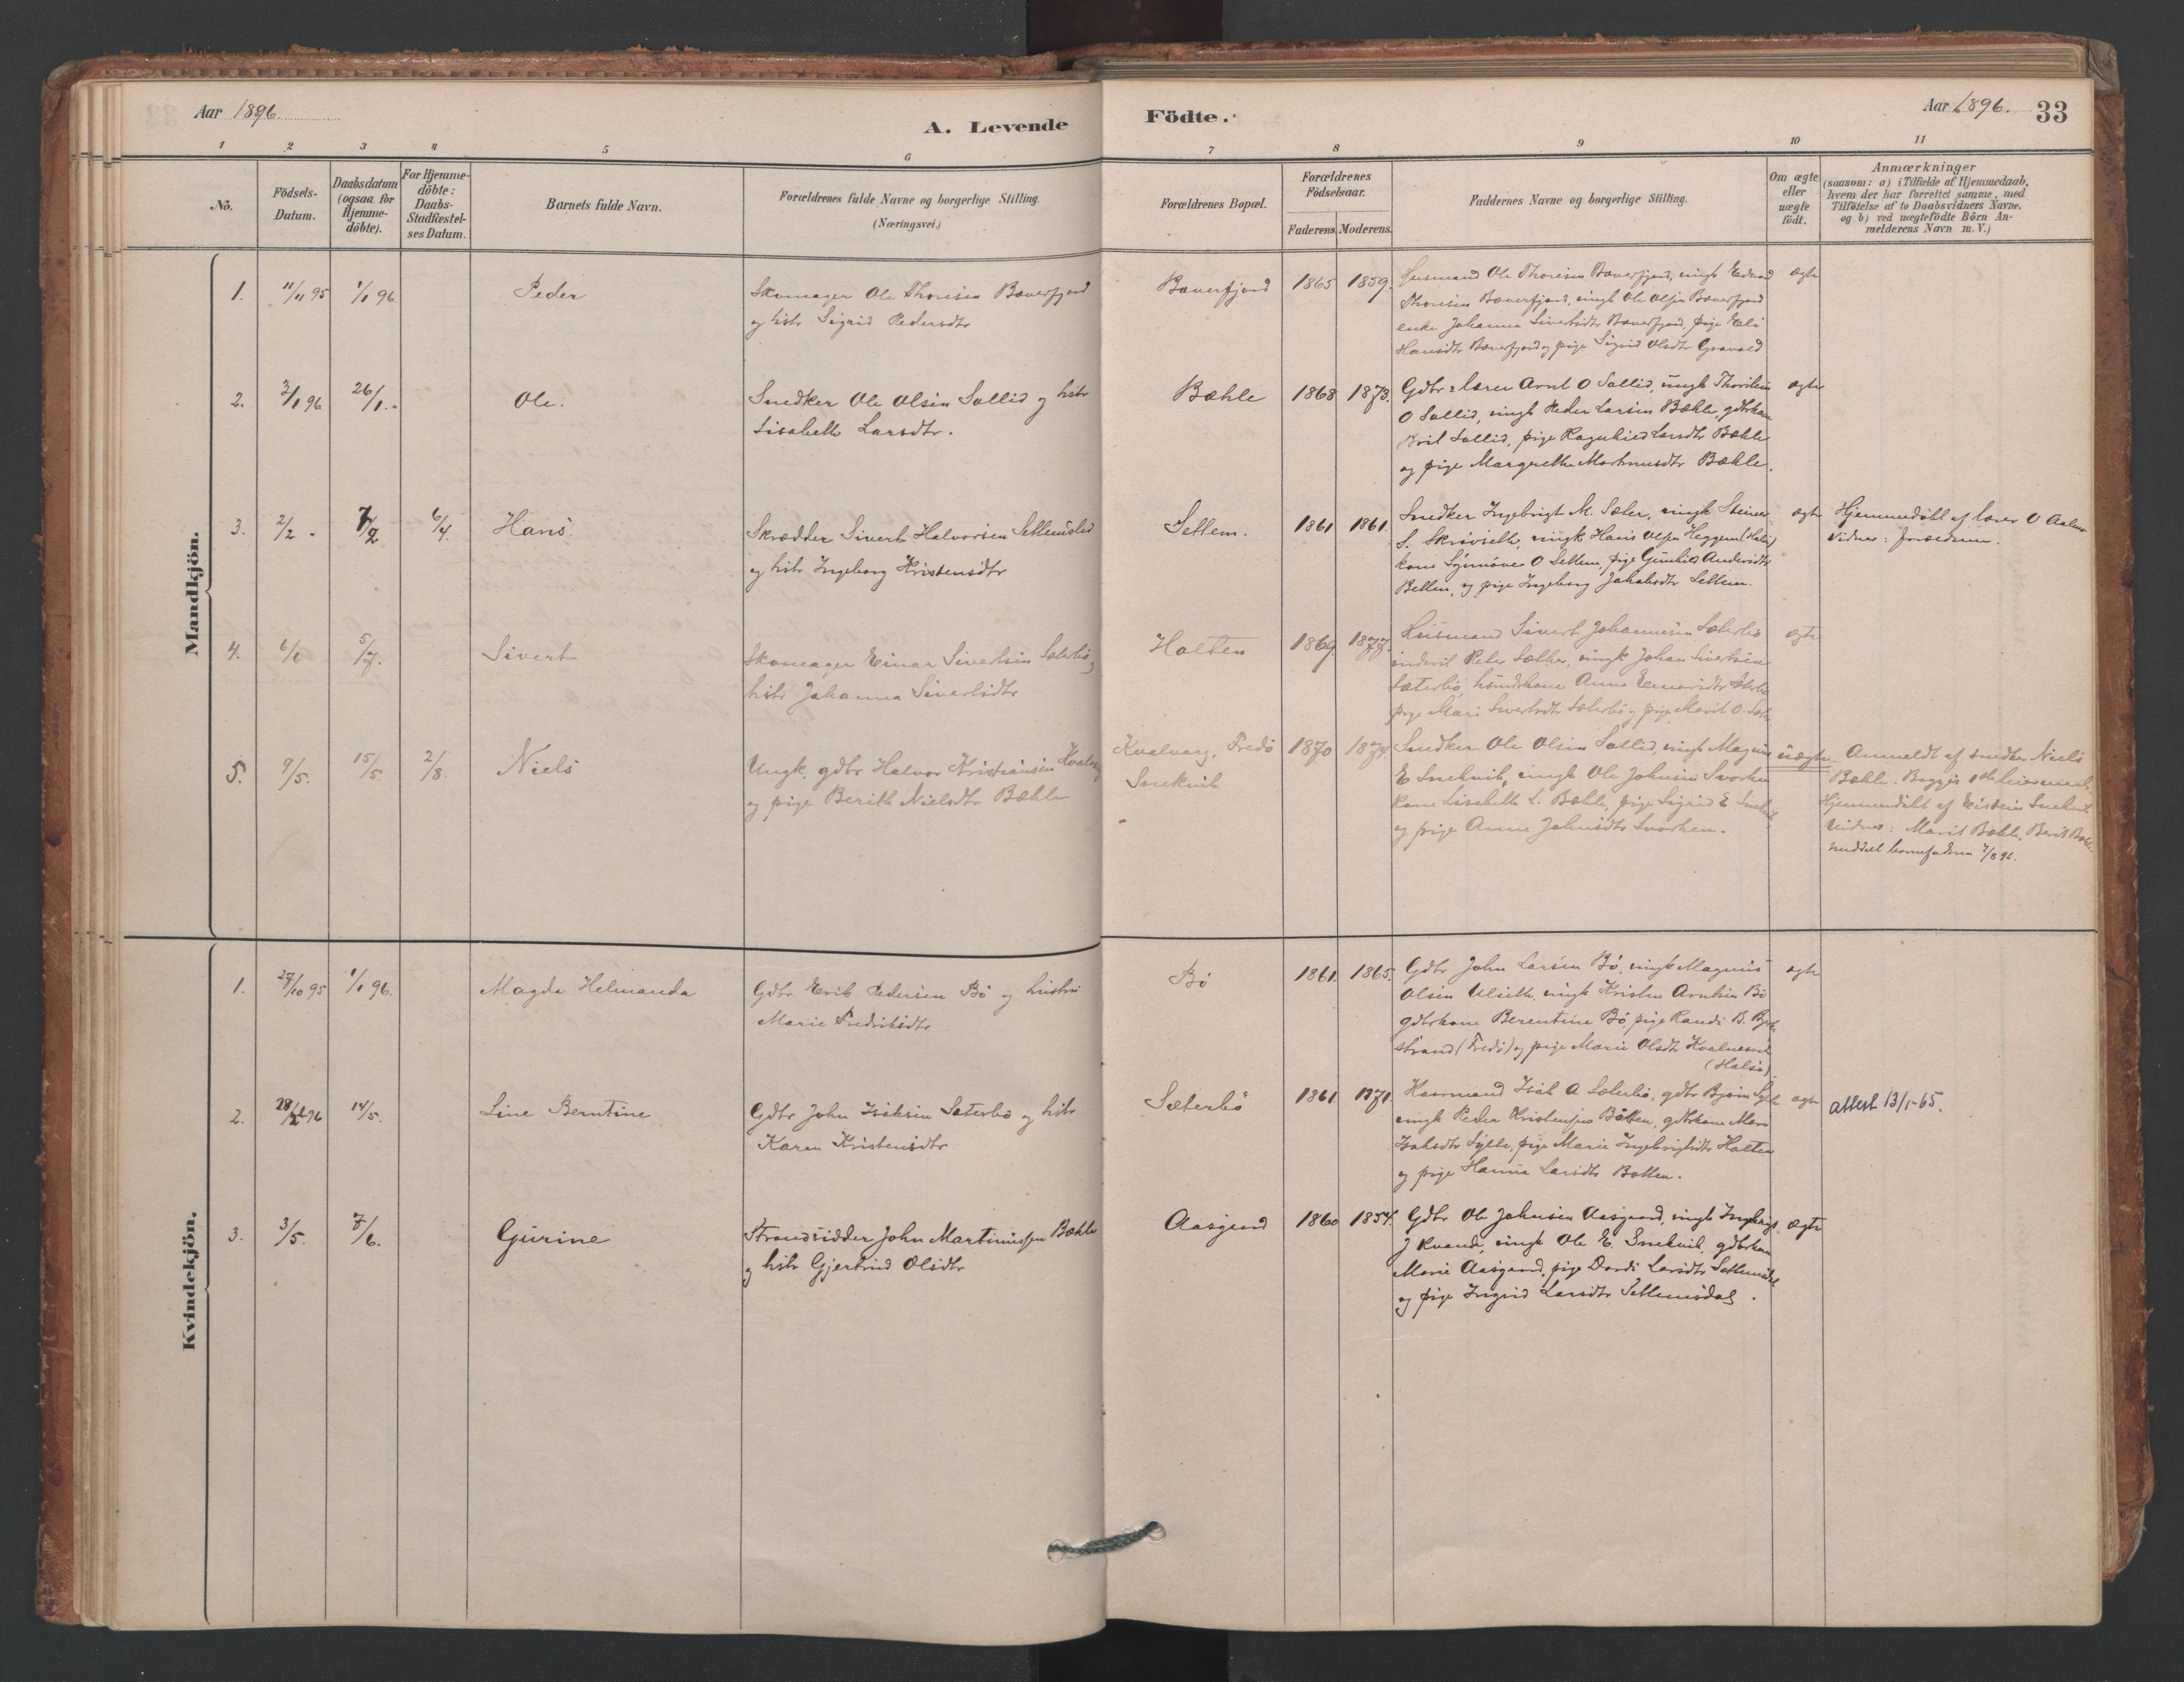 Aar 1896.
A. Levende
Födte.
Aar 1896.
33
1 2 3 4 5 6 7 8 9 10 11
No.
Födsels-
Datum.
Daabsdatum
(ogsaa for
Hjemme-
döbte).
For Hjemme-
döbte:
Daabs-
Stadfæstel-
ses Datum.
Barnets fulde Navn.
Forældrenes fulde Navne og borgerlige Stilling.
(Næringsvei.)
Forældrenes Bopæl.
Forældrenes
Födselsaar.
Faderens. Moderens.
Faddernes Navne og borgerlige Stilling.
Om ægte
eller
uægte
födt.
Anmærkninger
(saasom: a) i Tilfælde af Hjemmedaab,
hvem der har forrettet samme, med
Tilföielse af to Daabsvidners Navne.
og b) ved uægtefödte Börn An-
melderens Navn m. V.)
Mandkjön.
1. 11/11 95 1/1 96. Peder
Skomager Ole Thoresen Bæverfjord
og hstr Sigrid Pedersdtr
Bæverfjord 1865 1859.
Husmand Ole Thoresen Bæverfjord, ungk Edvard
Thoresen Bæverfjord, ungk Ole Olsen Bæverfjord
enke Johanna Sivertsdtr Bæverfjord, pige Eli
Hansdtr Bæverfjord og pige Sigrid Olsdtr
ægte
2. 3/1 96 26/1. Ole.
Snedker Ole Olsen Sollid og hstr
Lisabeth Larsdtr.
Bæhle 1868 1873.
Gdbr & lærer Arnt O Sollid, ungk
O Sollid, ungk Peder Larsen Bæhle, gdbrkone
Sollid, pige Ragnhild Larsdtr Bæhle
og pige Margrethe Martinusdtr Bæhle.
ægte
3. 2/2 - 7/2 6/4. Hans.
Skrædder Sivert Halvorsen Settemslid
og hstr Ingeborg Kristensdtr
Settem. 1861 1861.
Snedker Ingebrigt M. Sæter, ungk Steiner
S. Skrøvseth, ungk Hans Olsen Heggem (Halse)
kone Synnøve O Settem, pige Gunhild Andersdtr
Betten, og pige Ingeborg Jakobsdtr Settem.
ægte
Hjemmedöbt af lærer O
Vidner: forældrene.
4. 6/6 5/7. Sivert
Skomager Einar Sivertsen Sæterbø og
hstr Johanna Sivertsdtr
Holten 1869. 1877.
Husmand Sivert Johannesen Sæterbø
Peter Sæther, ungk Johan Sivertsen
Sæterbø, kone Anne Einarsdtr Sæterbø
pige Mari Sivertsdtr Sæterbø og pige Marit O.
ægte
5. 9/5. 15/5. 2/8. Niels
Ungk. gdbr Halvor Kristiansen Kvalvaag
og pige Berith Nielsdtr Bæhle
Kvalvaag, Fredø
Snekvik
1870 1874.
Snedker Ole Olsen Sollid, ungk Magnus
E Snekvik, ungk Ole Johnsen Svorken
kone Lisabeth L. Bæhle, pige Sigrid E Snekvik
og pige Anne Johnsdtr Svorken.
uægte
Anmeldt af snedker Niels
Bæhle. Begges 1ste leiermaal.
Hjemmedöbt af Eistein Snekvik
Vidner: Marit Bæhle, Berit Bæhle.
meddelt barnefaderen 7/8 96.
Kvindekjön.
1. 27/10 95 1/1 96. Magda Helmanda
Gdbr Erik Pedersen Bö og hustru
Marie Fredriksdtr
Bö 1861. 1865.
Gdbr John Larsen Bö, ungk Magnus
Olsen Ulseth, ungk Kristen Arntsen Bö
gdbrkone Berentine Bö, pige Randi B.
strand (Fredø) og pige Marie Olsdtr
(Halse)
ægte
2. 28/2 96 14/5. Line Berntine
Gdbr John Isaksen Sæterbö og hstr
Karen Kristensdtr
Sæterbö 1861 1871.
Kaarmand Isak A Sæterbö, gdbr Bjørn Sylte
ungk Peder Kristensen Bötten, gdbrkone Mari
Isaksdtr Sylte, pige Marie Ingebrigtsdtr Holten
og pige Hanna Larsdtr Botten.
ægte
attest 13/1-65.
3. 3/5. 7/6. Gurine
Strandsidder John Martinussen Bæhle
og hstr Gjertrud Olsdtr
Aasgaard 1860 1854.
Gdbr Ole Johnsen Aasgaard, ungk Ingebrigt
J Kvande, ungk Ole E. Snekvik, gdbrkone
Marie Aasgaard, pige Dordi Larsdtr Settemsdal
og pige Ingrid Larsdtr Settemsdal.
ægte